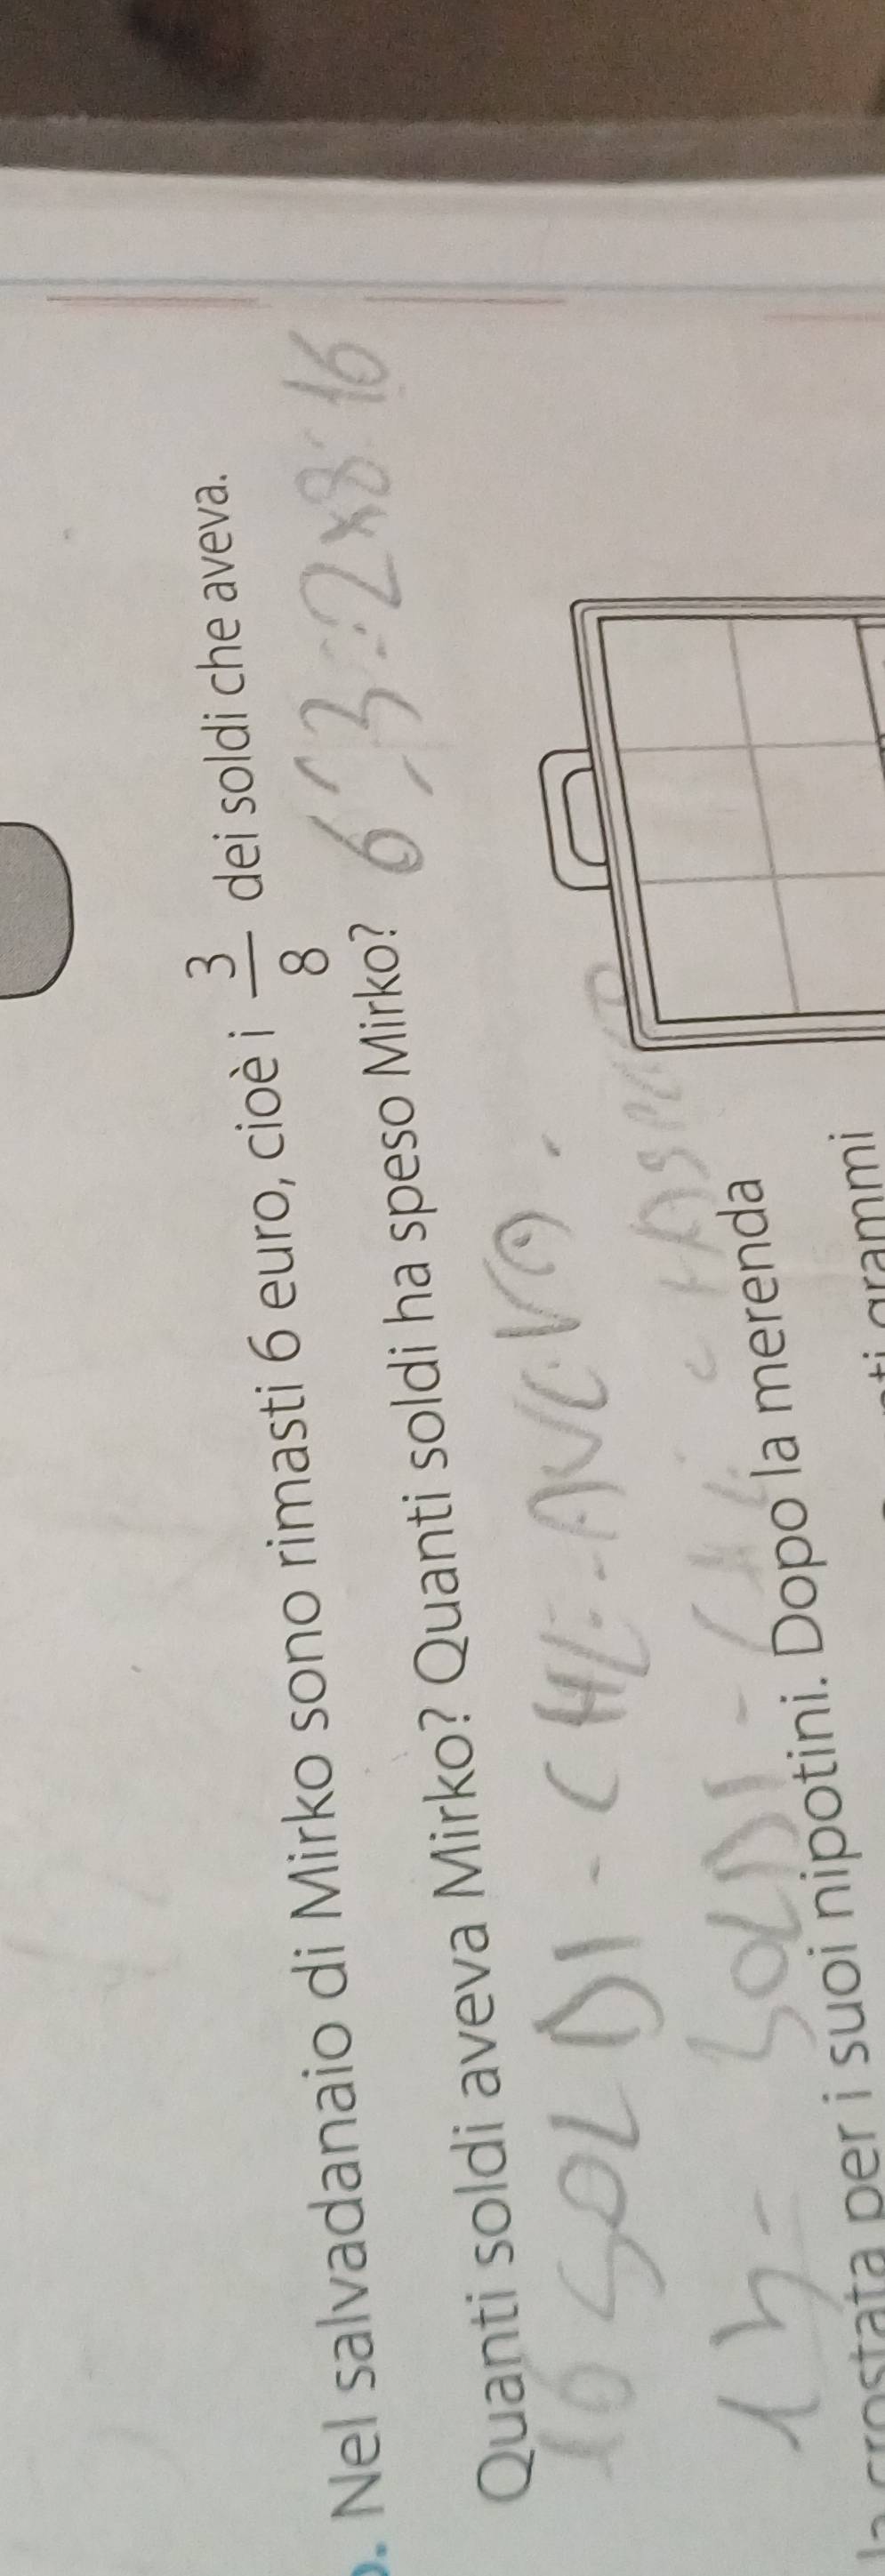 Nel salvadanaio di Mirko sono rimasti 6 euro, cioè i 3/8 dei soldi che aveva.
Quanti soldi aveva Mirko? Quanti soldi ha speso Mirko? 6:3=2x8=16
16 SOLDI - CHE - AVEVA.
SOLDI - CHE
i suoi nipotini. Dopo la merenda
grammi